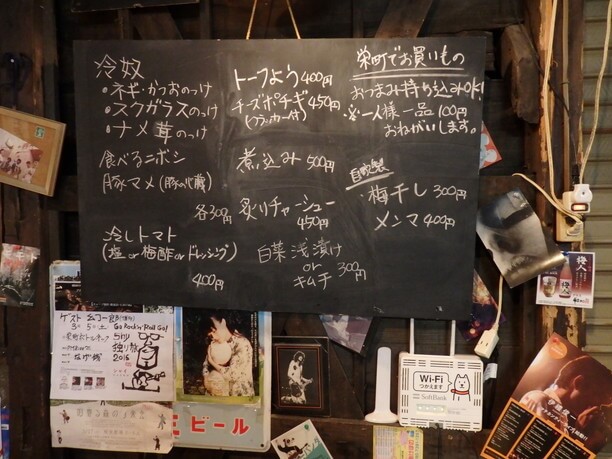 冷奴
・ネギ・かつおのっけ
・スクガラスのっけ
・ナメ茸のっけ
食べるニボシ
豚マメ(豚の心臓)
各300円
冷しトマト
(塩or梅酢orドレッシング)
400円
トーフよう 400円
チーズポチギ 450円
(クラッカー付)
煮込み 500円
炙りチャーシュー
450円
白菜浅漬け
or
キムチ
300円
栄町でお買いもの
おつまみ持ち込みOK!
※一人様一品100円
おねがいします。
自家製
・梅干し 300円
メンマ 400円
ゲスト
Go Rockin' Roll Go!
独り旅
2015
ビール
Wi-Fi
つかえます
SoftBank
梅人